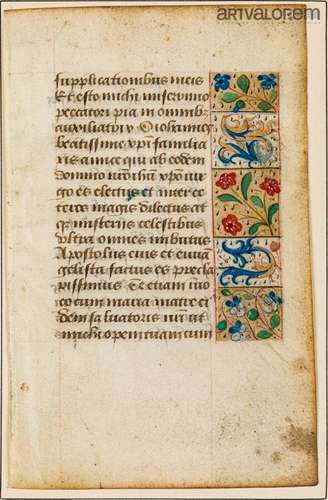 ARTVALOREM
supplicationibus meis
Et esto michi miserrimo
peccatori pia in omnibꝫ
auxiliatrix O iohannes
beatissime xpi familia
ris amice qui ab eodem
domino nr̃o ihũ xpo vir
go es electus et inter ce
teros magis dilectus at
que misteriis celestibus
ultra omnes imbutus
Apostolus eius et euan
gelista factus es precla
rissimus Te etiam inuo
co cum maria matre ei9
dem saluatoris nr̃i ut
michi opem tuam cum